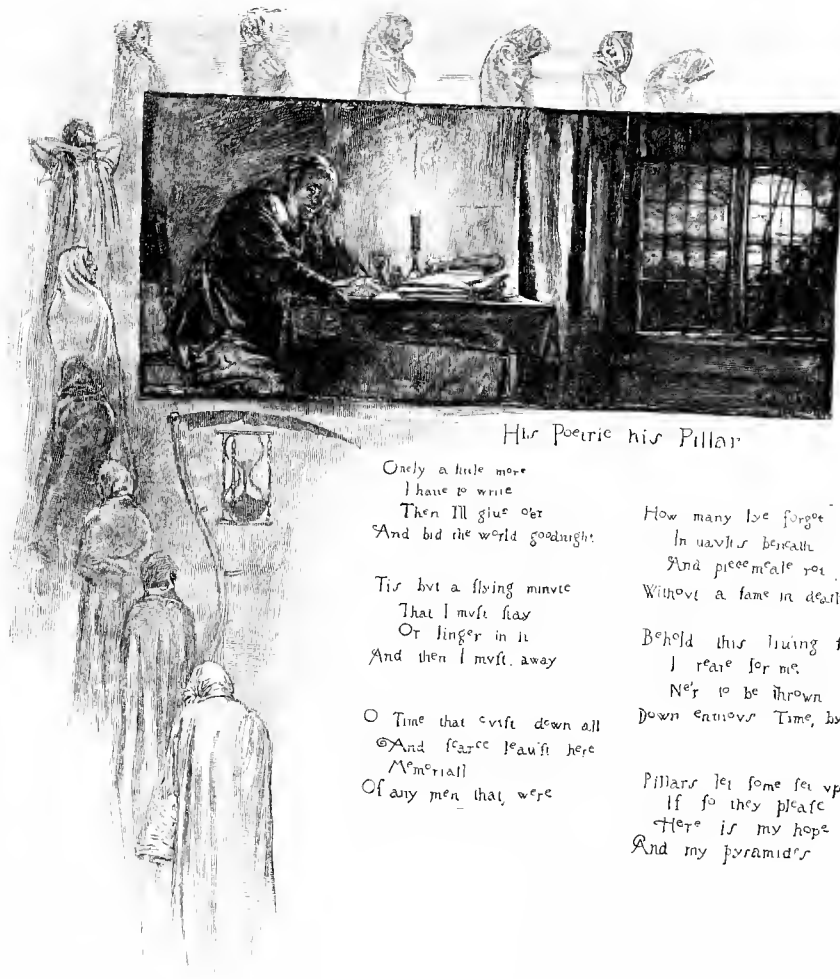 His Poetrie his Pillar
Onely a little more
I haue to write
Then I'll giue o'er
And bid the world goodnight.
Tis bvt a flying minvte
That I mvſt ſtay
Or linger in it
And then I mvſt away
O Time that cvtſt down all
And ſcarce leau'ſt here
Memoriall
Of any men that were
How many lye forgot
In uavlts beneath
And piecemeale rot
Withovt a fame in death
Behold this liuing
I reare for me
Ne'r to be thrown
Down enuiovs Time, by
Pillars let ſome ſet vp
If ſo they pleaſe
Here is my hope
And my pyramides